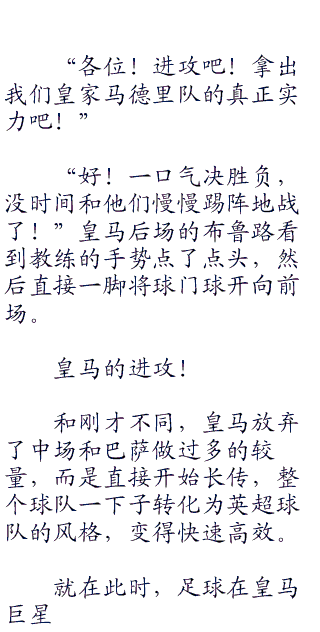 “各位！进攻吧！拿出
我们皇家马德里队的真正实
力吧！”
“好！一口气决胜负，
没时间和他们慢慢踢阵地战
了！”皇马后场的布鲁路看
到教练的手势点了点头，然
后直接一脚将球门球开向前
场。
皇马的进攻！
和刚才不同，皇马放弃
了中场和巴萨做过多的较
量，而是直接开始长传，整
个球队一下子转化为英超球
队的风格，变得快速高效。
就在此时，足球在皇马
巨星